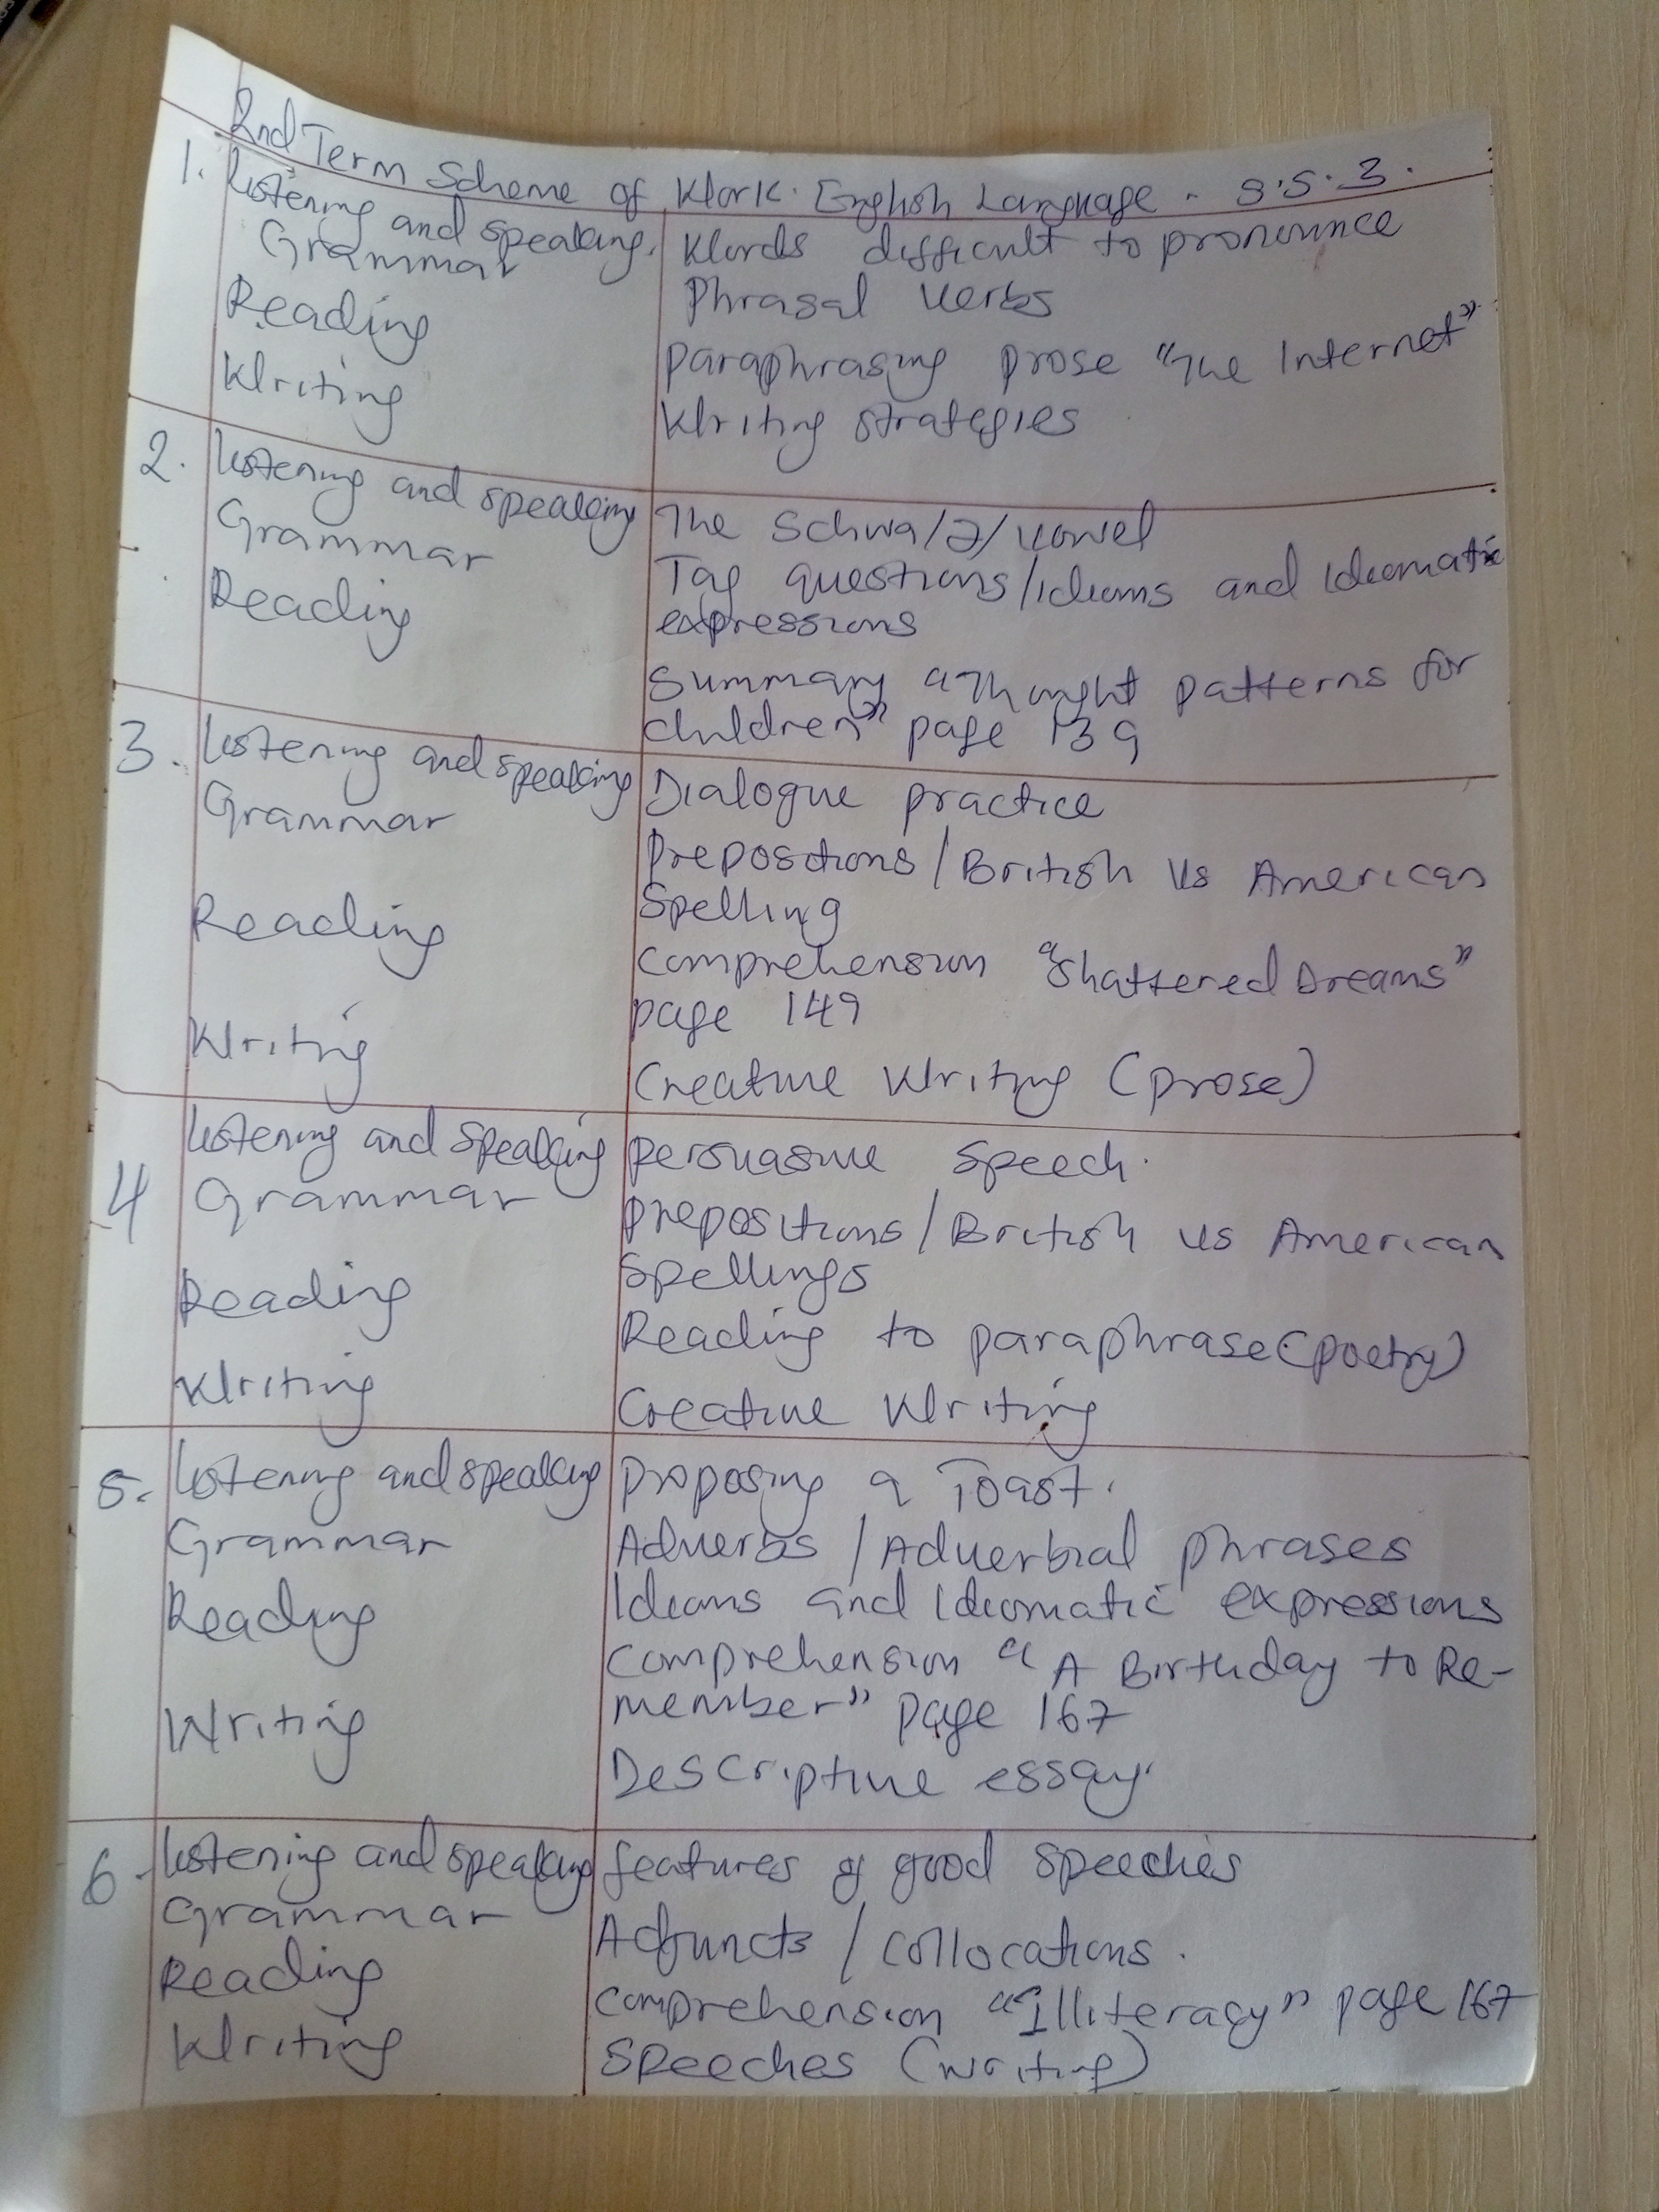 2nd Term Scheme of Work. English Language - S.S.3.
1. Listening and speaking. Words difficult to pronounce
Grammar Phrasal Verbs
Reading paraphrasing prose "The Internet"
Writing Writing strategies
2. Listening and speaking The Schwa /ə/ vowel
Grammar Tag questions/Idioms and Idiomatic
expressions
Reading Summary "Thought patterns for
children" page 139
3. Listening and speaking Dialogue practice
Grammar Prepositions/British Vs American
Spelling
Reading Comprehension "Shattered Dreams"
page 149
Writing Creative Writing (prose)
4 Listening and speaking persuasive speech.
Grammar prepositions/British vs American
Spellings
Reading Reading to paraphrase (poetry)
Writing Creative Writing
5. Listening and speaking proposing a Toast.
Grammar Adverbs / Adverbial phrases
Idioms and Idiomatic expressions
Reading Comprehension "A Birthday to Re-
member" page 167
Writing Descriptive essay.
6 Listening and speaking features of good speeches
Grammar Adjuncts / collocations.
Reading comprehension "Illiteracy" page 167
Writing Speeches (writing)